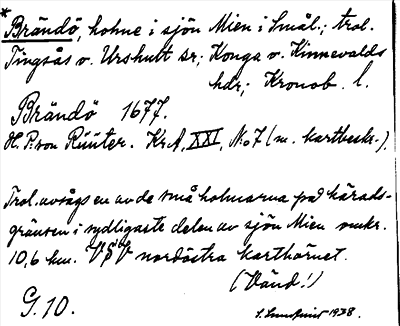 * Brändö, holme i sjön Mien i Smål.; trol.
Tingsås o. Urshult sr; Konga o. Kinnevalds
hdr; Kronob. l.
Brändö 1677.
H. P. von Rüüter. KrA, XXI, No 7 (m. kartbeskr.).
Trol. avsågs en av de små holmarna på härads-
gränsen i sydligaste delen av sjön Mien omkr.
10,6 km. VSV nordöstra karthörnet.
(Vänd!)
G. 10.
1938.